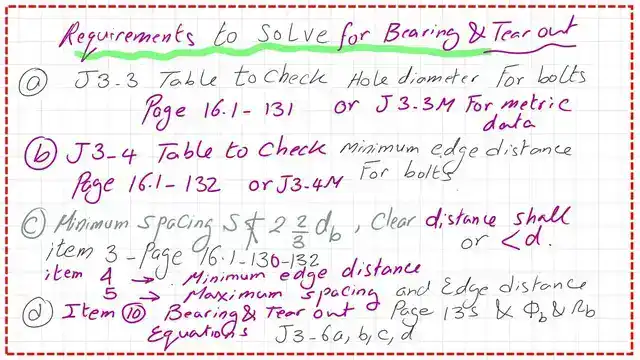 Requirements to Solve for Bearing & Tear out
(a) J3-3 Table to Check Hole diameter For bolts
Page 16.1-131 or J3-3M For metric data
(b) J3-4 Table to Check Minimum edge distance For bolts
Page 16.1-132 or J3-4M
(c) Minimum spacing S ≮ 2 2/3 db, Clear distance shall
item 3 - Page 16.1-130-132 or < d.
item 4 → Minimum edge distance
5 → Maximum spacing and Edge distance
(d) Item (10) Bearing & Tear out Page 135 & Φb & Rb
Equations J3-6a, b, c, d